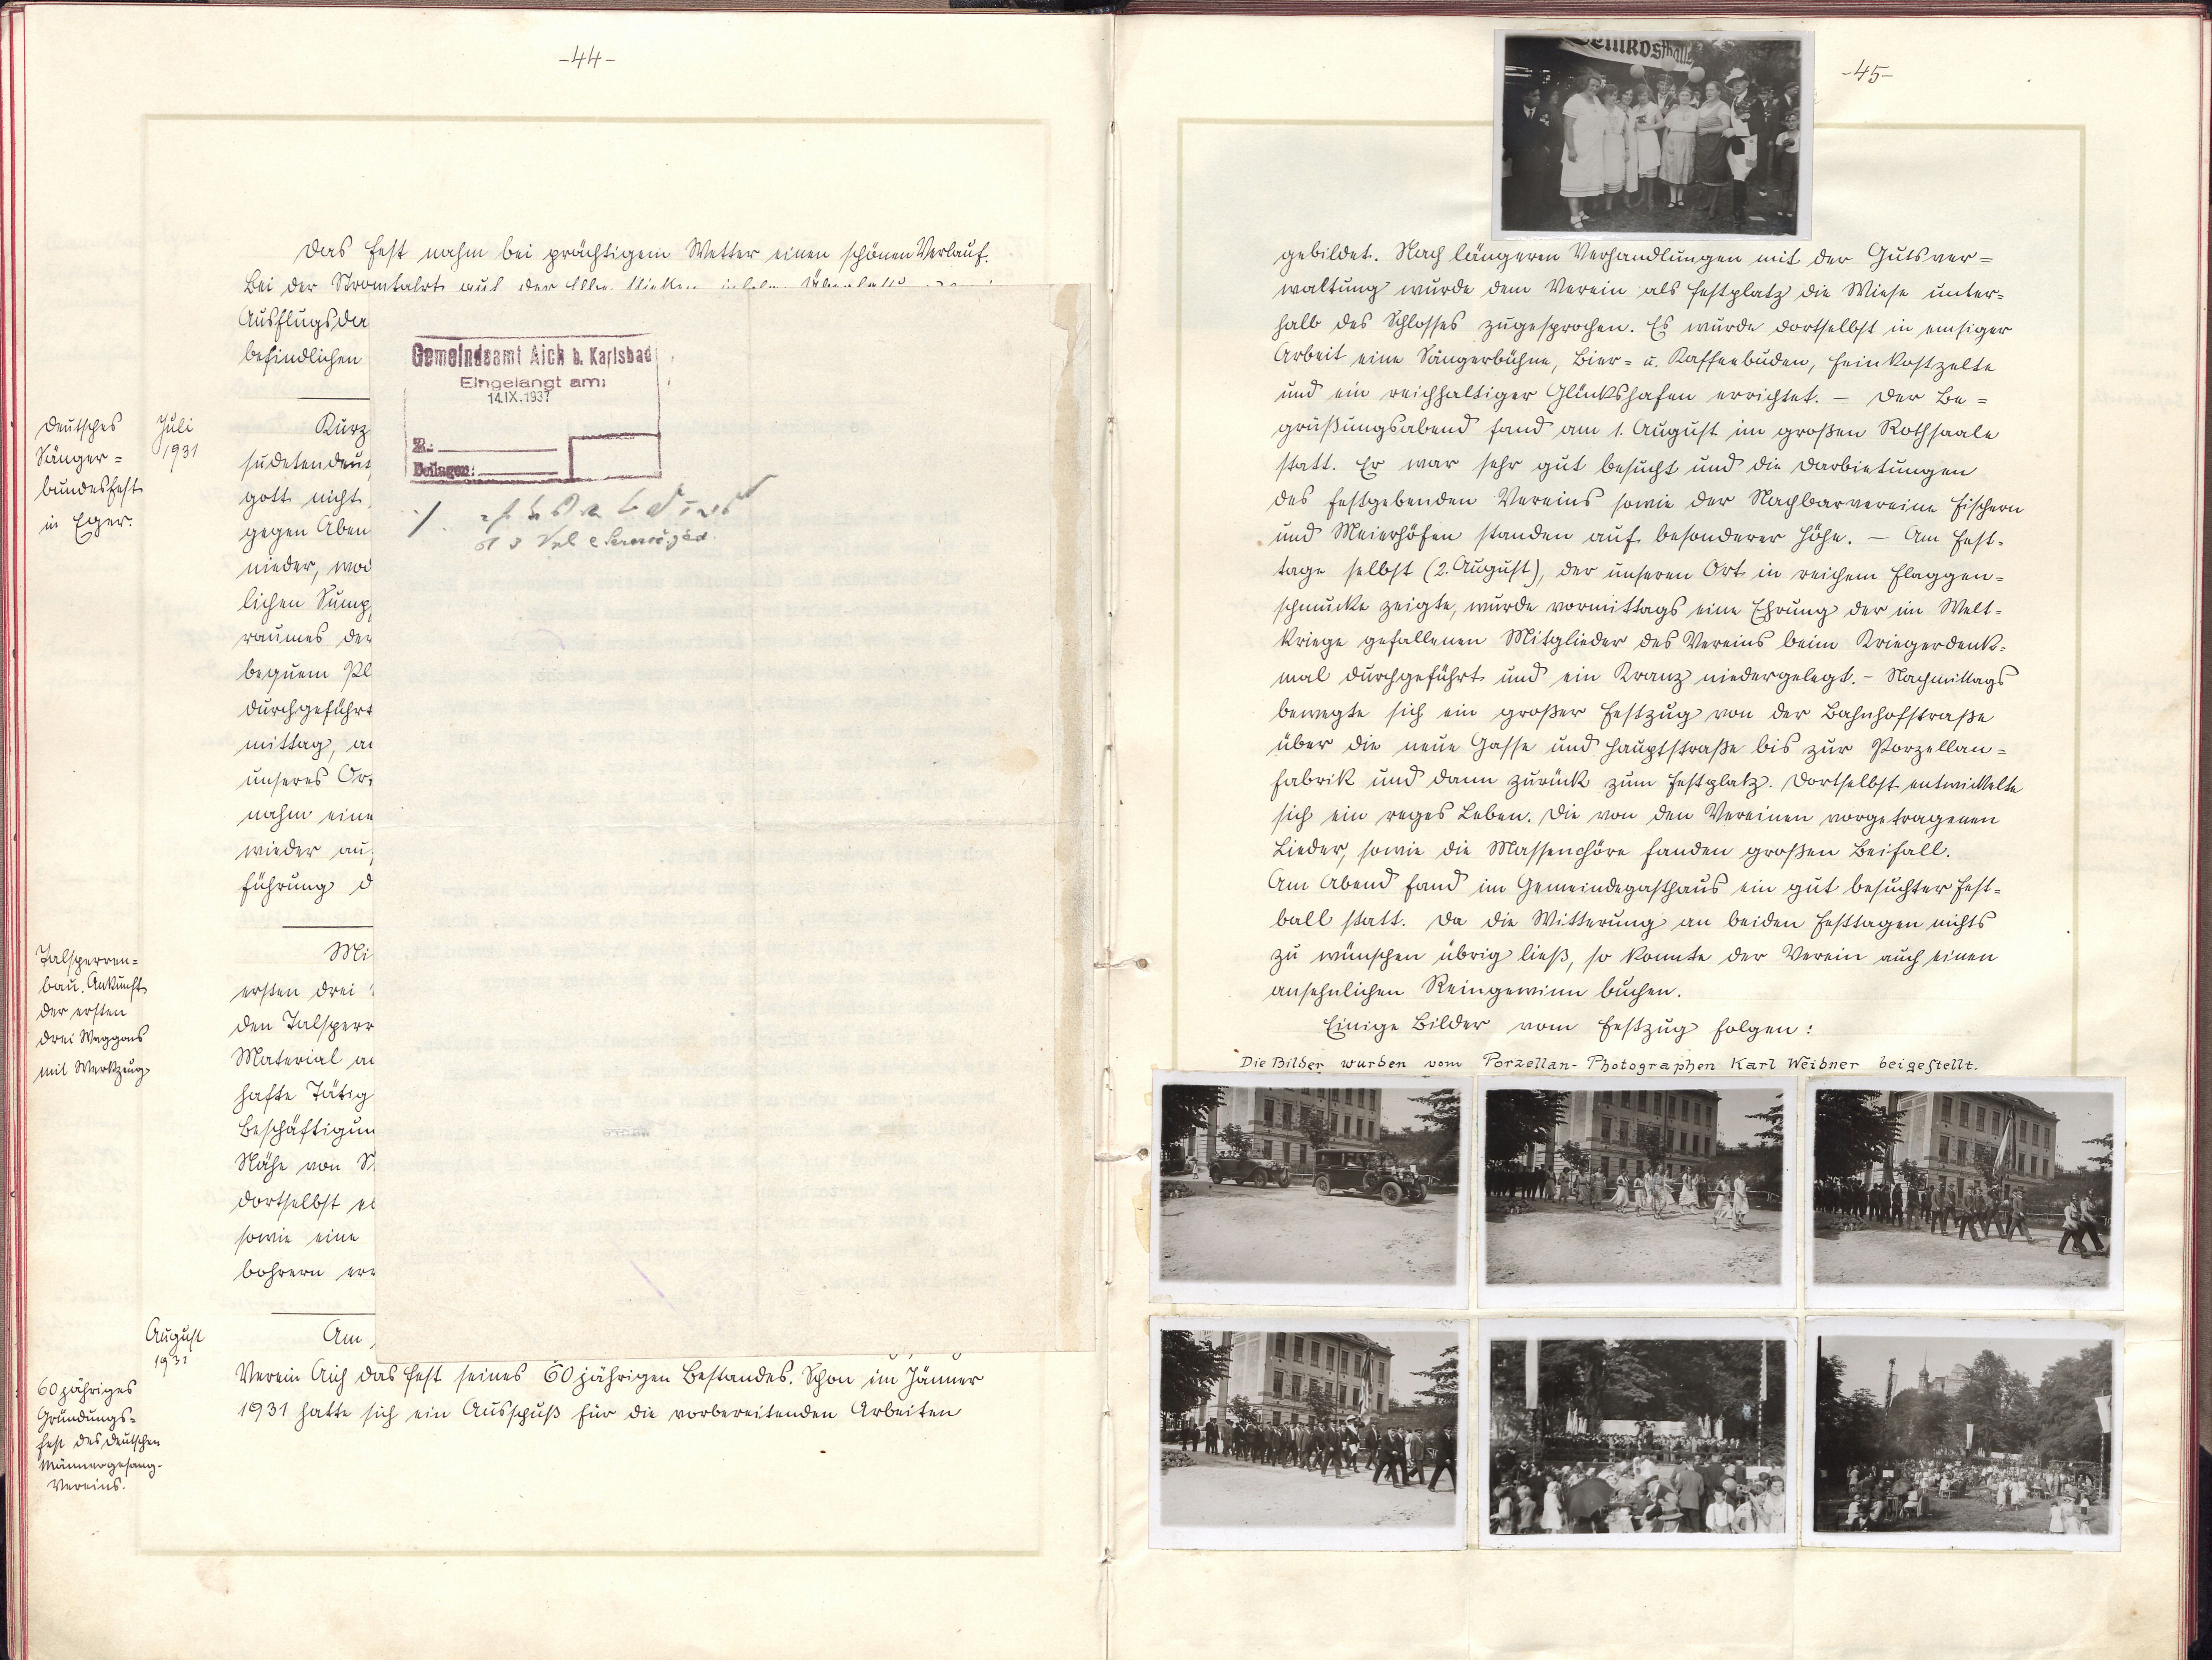 -44-
Das Fest nahm bei prächtigem Wetter einen schönen Verlauf.
Bei der Stromfahrt auf der
Ausflugsda
befindlichen
Deutsches
Sänger=
bundesfest
in Eger.
Juli
1931
Kurz
sudetendeut
gott nicht
gegen Aben
nieder, wod
lichen Sump
raumes der
bequem Pl
durchgeführt
mittag, an
unseres Or
nahm eine
wieder au
führung d
Talsperren=
bau. Ankunft
der ersten
drei Waggons
mit Werkzeug
Mi
ersten drei
den Talsperr
Material an
hafte Tätig
Beschäftigun
Nähe von
dortselbst ei
sowie eine
bohrern err
August
1931
60 jähriges
Gründungs=
fest des deutschen
Männergesang-
Vereins.
Am
Verein Aich das Fest seines 60 jährigen Bestandes. Schon im Jänner
1931 hatte sich ein Ausschuß für die vorbereitenden Arbeiten
Gemeindeamt Aich b. Karlsbad
Eingelangt am:
14.IX.1937
Z.:
Beilagen:
-45-
gebildet. Nach längeren Verhandlungen mit der Gutsver=
waltung wurde dem Verein als Festplatz die Wiese unter=
halb des Schlosses zugesprochen. Es wurde dortselbst in emsiger
Arbeit eine Sängerbühne, Bier= u. Kaffeebuden, Feinkostzelte
und ein reichhaltiger Glückshafen errichtet. — Der Be=
grüßungsabend fand am 1. August im großen Rothsaale
statt. Er war sehr gut besucht und die Darbietungen
des festgebenden Vereins sowie der Nachbarvereine Fischern
und Meierhöfen standen auf besonderer Höhe. — Am Fest-
tage selbst (2. August), der unseren Ort in reichem Flaggen=
schmucke zeigte, wurde vormittags eine Ehrung der im Welt-
kriege gefallenen Mitglieder des Vereins beim Kriegerdenk-
mal durchgeführt und ein Kranz niedergelegt. - Nachmittags
bewegte sich ein großer Festzug von der Bahnhofstraße
über die neue Gasse und Hauptstraße bis zur Porzellan=
fabrik und dann zurück zum Festplatz. Dortselbst entwickelte
sich ein reges Leben. Die von den Vereinen vorgetragenen
Lieder, sowie die Massenchöre fanden großen Beifall.
Am Abend fand im Gemeindegasthaus ein gut besuchter Fest-
ball statt. Da die Witterung an beiden Festtagen nichts
zu wünschen übrig ließ, so konnte der Verein auch einen
ansehnlichen Reingewinn buchen.
Einige Bilder vom Festzug folgen:
Die Bilder wurden vom Porzellan-Photographen Karl Weidner beigestellt.